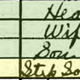 Head
Wife
Son
Step So